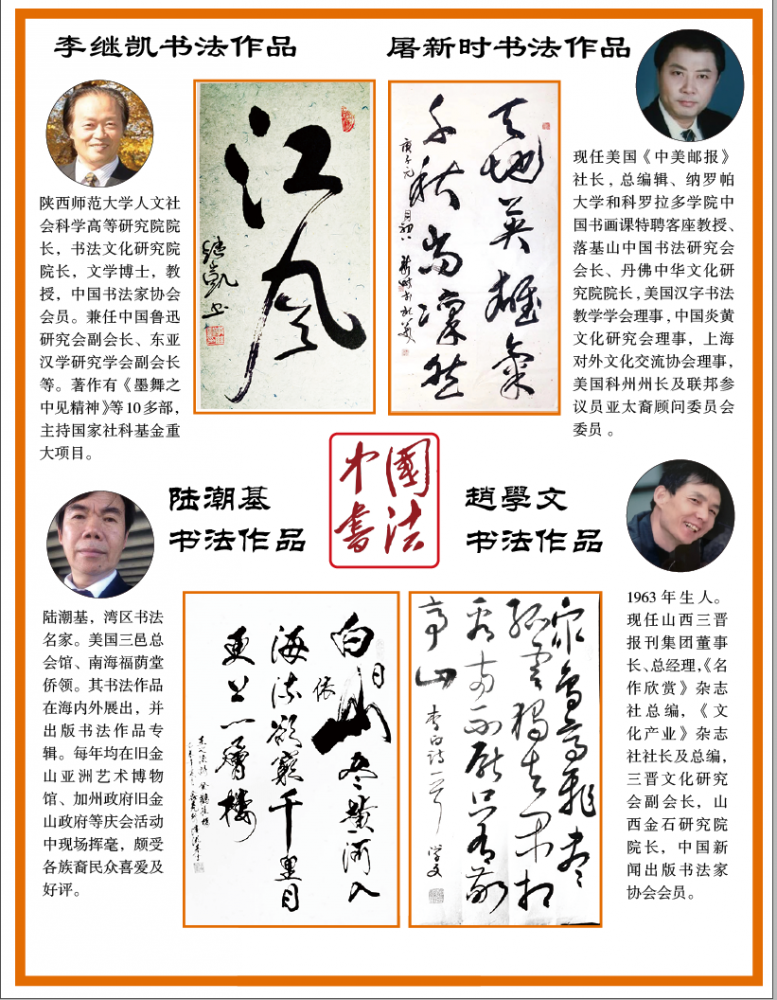 李继凯书法作品
陕西师范大学人文社
会科学高等研究院院
长，书法文化研究院
院长，文学博士，教
授，中国书法家协会
会员。兼任中国鲁迅
研究会副会长、东亚
汉学研究学会副会长
等。著作有《墨舞之
中见精神》等10多部，
主持国家社科基金重
大项目。
江风
继凯书
屠新时书法作品
天地英雄气
千秋尚凛然
庚子元月初八
现任美国《中美邮报》
社长，总编辑、纳罗帕
大学和科罗拉多学院中
国书画课特聘客座教授、
落基山中国书法研究会
会长、丹佛中华文化研
究院院长，美国汉字书法
教学学会理事，中国炎黄
文化研究会理事，上海
对外文化交流协会理事，
美国科州州长及联邦参
议员亚太裔顾问委员会
委员。
中國
書法
陆潮基
书法作品
陆潮基，湾区书法
名家。美国三邑总
会馆、南海福荫堂
侨领。其书法作品
在海内外展出，并
出版书法作品专
辑。每年均在旧金
山亚洲艺术博物
馆、加州政府旧金
山政府等庆会活动
中现场挥毫，颇受
各族裔民众喜爱及
好评。
白日依山尽黄河入
海流欲窮千里目
更上一層楼
趙學文
书法作品
众鸟高飞尽
孤云独去闲相
看两不厌只有敬
亭山
李白诗一首
学文
1963年生人。
现任山西三晋
报刊集团董事
长、总经理，《名
作欣赏》杂志
社总编，《文
化产业》杂志
社社长及总编，
三晋文化研究
会副会长，山
西金石研究院
院长，中国新
闻出版书法家
协会会员。